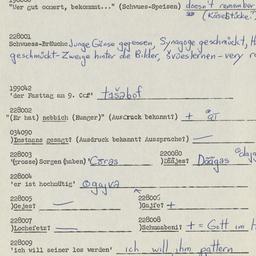 "Wer gut oomert, bekommt..." (Schwues-Speisen) doesn't remember
(Käsestücke?)
228001
Schwuess-Bräuche Junge Gänse gegessen, Synagoge geschmückt, H
geschmückt-Zweige hinter die Bilder, švüesternen - very
199042
'der Festtag am 9. Ocf'
228002
"(Er hat) nebbich (Hunger)" (Ausdruck bekannt?) +
034090
)Instanz gesagt? (Ausdruck bekannt? Aussprache?)
228003
'(grosse) Sorgen (haben)' Cōras
220080
)Däájes?
228004
'er ist hochmütig'
228005
)Gejes?
228006
)Gajfe? +
228007
)Lochefetz?
228008
)Schmuabeni? + = Gott im H
228009
'ich will seiner los werden' ich will ihm pattern